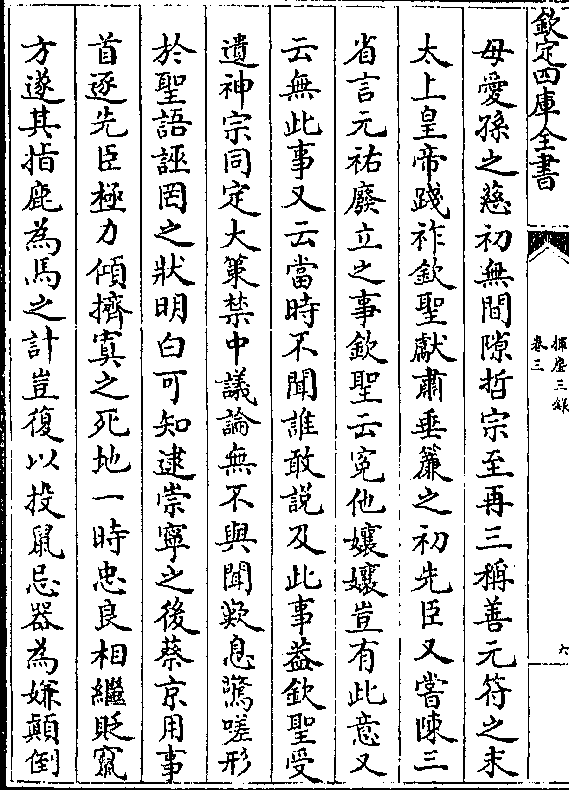 欽定四庫全書
揮麈三錄
卷三
六
母愛孫之慈初無間隙哲宗至再三稱善元符之末
太上皇帝踐祚欽聖獻肅垂簾之初先臣又嘗陳三
省言元祐廢立之事欽聖云寃他孃孃豈有此意又
云無此事又云當時不聞誰敢説及此事葢欽聖受
遺神宗同定大策禁中議論無不與聞歎息驚嗟形
於聖語誣罔之狀明白可知逮崇寧之後蔡京用事
首逐先臣極力傾擠寘之死地一時忠良相繼貶竄
方遂其指鹿為馬之計豈復以投鼠忌器為嫌顛倒